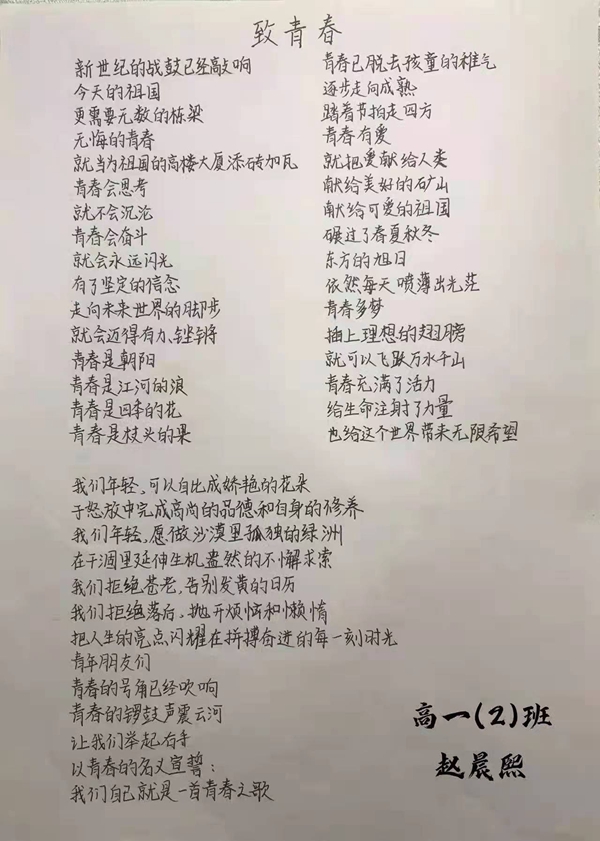 致青春
新世纪的战鼓已经敲响
今天的祖国
更需要无数的栋梁
无悔的青春
就当为祖国的高楼大厦添砖加瓦
青春会思考
就不会沉沦
青春会奋斗
就会永远闪光
有了坚定的信念
走向未来世界的脚步
就会迈得有力、铿锵
青春是朝阳
青春是江河的浪
青春是四季的花
青春是枝头的果
青春已脱去孩童的稚气
逐步走向成熟
踏着节拍走四方
青春有爱
就把爱献给人类
献给美好的矿山
献给可爱的祖国
碾过了春夏秋冬
东方的旭日
依然每天喷薄出光茫
青春多梦
插上理想的翅膀
就可以飞跃万水千山
青春充满了活力
给生命注射了力量
也给这个世界带来无限希望
我们年轻,可以自比成娇艳的花朵
于怒放中完成高尚的品德和自身的修养
我们年轻,愿做沙漠里孤独的绿洲
在干涸里延伸生机盎然的不懈求索
我们拒绝苍老,告别发黄的日历
我们拒绝落后,抛开烦恼和懒惰
把人生的亮点闪耀在拼搏奋进的每一刻时光
青年朋友们
青春的号角已经吹响
青春的锣鼓声震云河
让我们举起右手
以青春的名义宣誓:
我们自己就是一首青春之歌
高一(2)班
赵晨熙